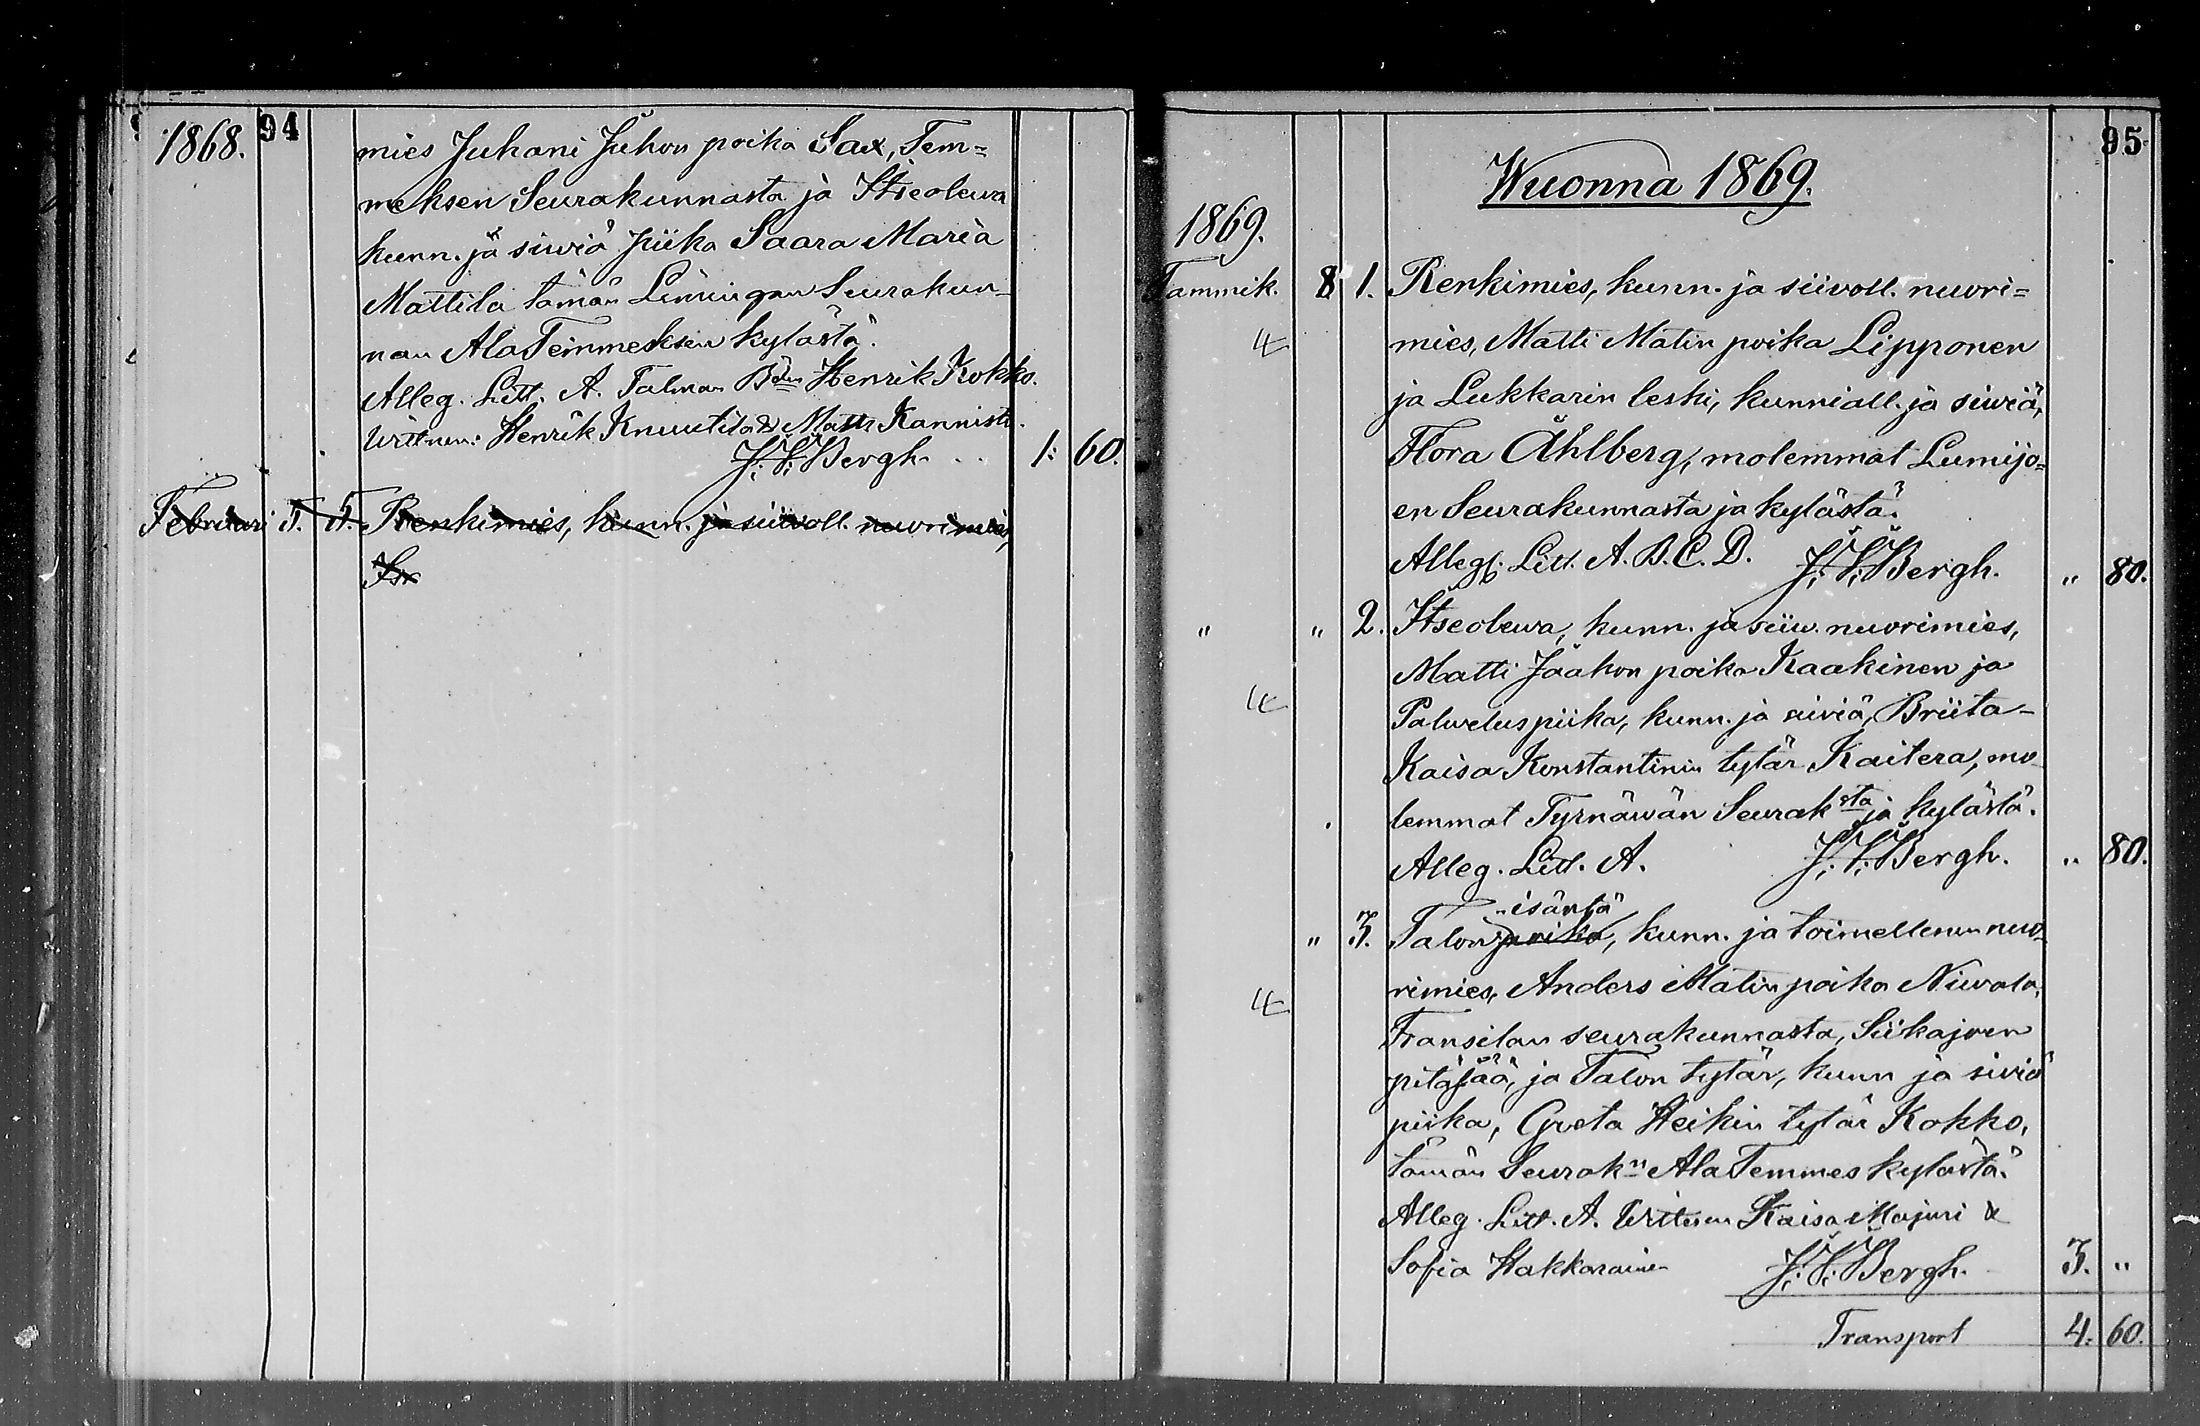 1868. 94
mies Juhani Juhon poika Sax, Tem=
meksen Seurakunnasta ja Itseolewa
kunn. ja siwiä piika Saara Maria
Mattila tämän Limingan Seurakun-
nan AlaTemmeksen kylästä.
Alleg. Litt. A. Talman Bdn Henrik Kokko.
Wittnen: Henrik Knuutila & Matts Kannisto.
J. V. Bergh. 1: 60.
Februari 5. 5. Renkimies, kunn. ja siiwoll. nuorimies,
95
Wuonna 1869.
1869.
Tammik. 8 1. Renkimies, kunn. ja siivoll. nuori=
mies, Matti Matin poika Lipponen
ja Lukkarin leski, kunniall. ja siwiä,
Flora Åhlberg, molemmat Lumijo=
en Seurakunnasta ja kylästä.
Alleg. Litt. A. B. C. D. J. V. Bergh. " 80.
" " 2. Itseolewa, kunn. ja siiw. nuorimies,
Matti Jaakon poika Kaakinen ja
Palweluspiika, kunn. ja siviä, Briita-
Kaisa Konstantinin tytär Kaitera, mo-
lemmat Tyrnäwän Seuraksta ja kylästä.
Alleg. Litt. A. J. V. Bergh. " 80.
isäntä
" 3. Talon poika, kunn. ja toimellinen nuo-
rimies, Anders Matin poika Niwala,
Fransilan seurakunnasta, Siikajoen
pitäjää, ja Talon tytär, kunn ja siviä
piika, Greta Heikin tytär Kokko,
tämän Seurakn AlaTemmes kylästä.
Alleg. Litt. A. Wittnen Kaisa Majuri &
Sofia Hakkarainen J. V. Bergh. 3. "
Transport 4: 60.